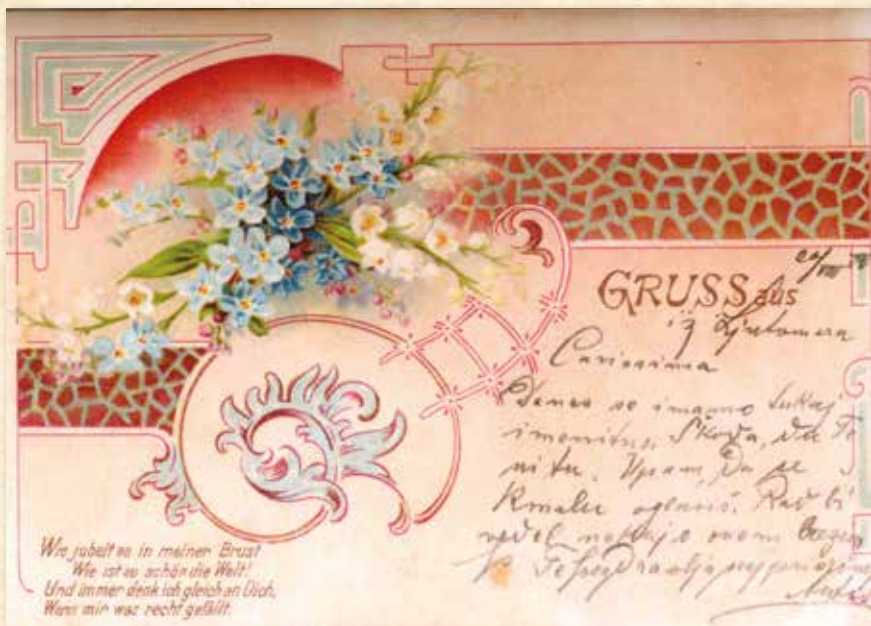 GRUSS aus
iz Ljutomera
Carissima
Danes so imamo tukaj
imenitno, Škoda, da Te
ni tu. Upam, da se
Kmalu oglasiš. Rad bi
vedel nekaj o
Te pozdravlja
Wie jubelt es in meiner Brust
Wie ist es schön die Welt!
Und immer denk ich gleich an Dich,
Wenn mir was recht gefällt.